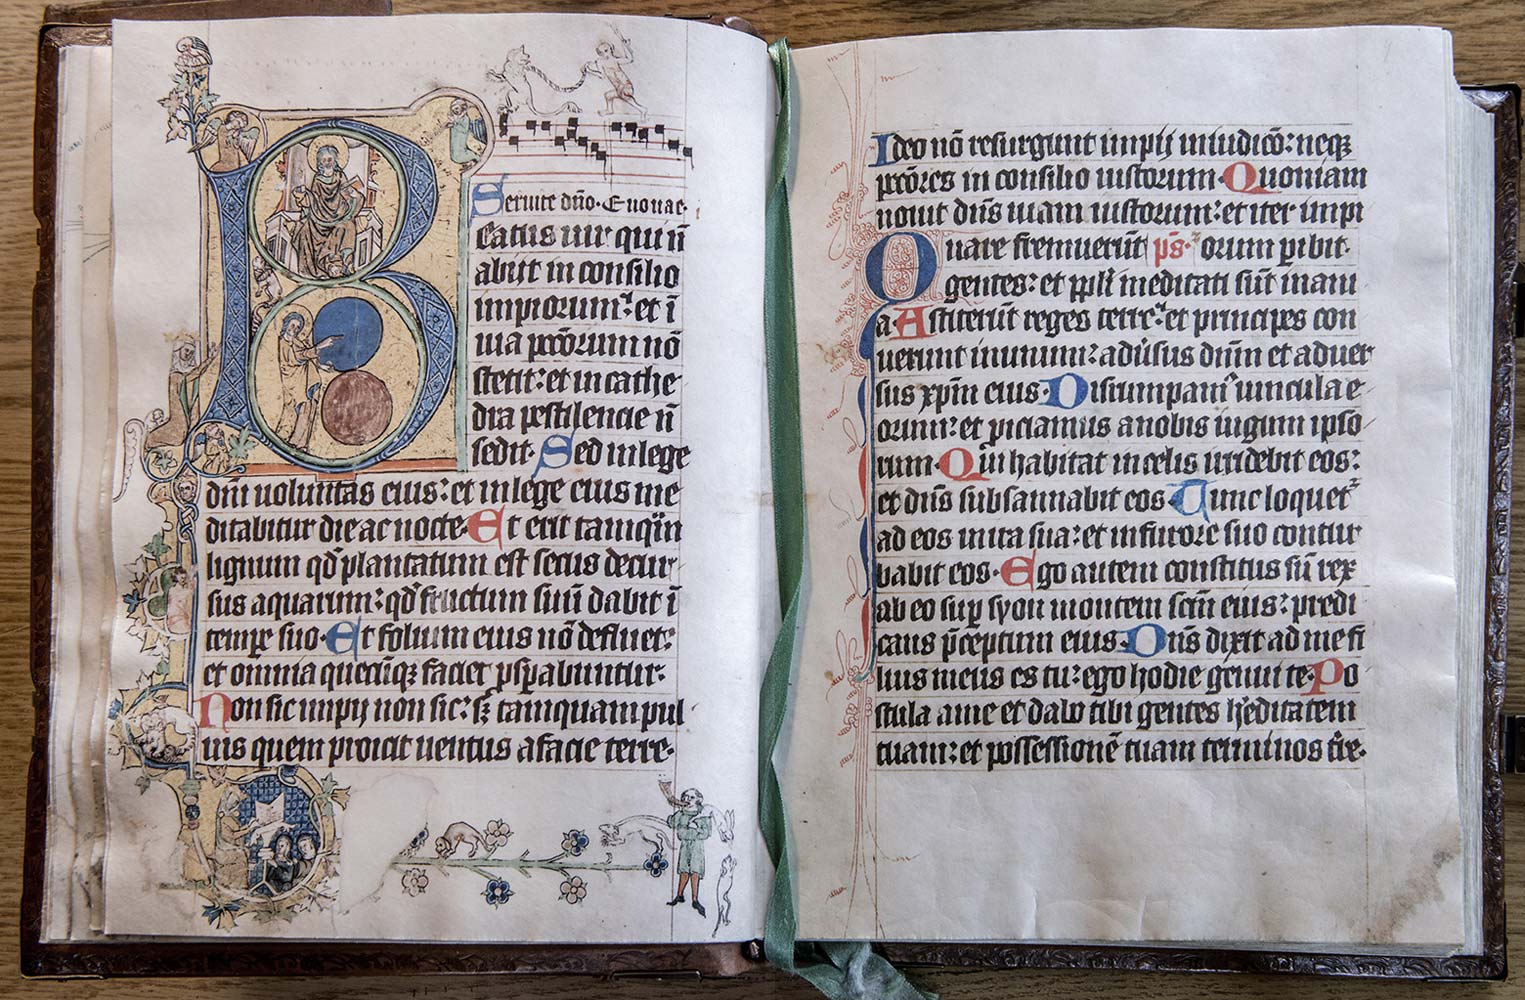 Seruite dño · Euouae ·
Beatus uir qui ñ
abiit in consilio
impiorum: et ĩ
uia pccõrum nõ
stetit: et in cathe
dra pestilencie ñ
sedit · Sed in lege
dñi uoluntas eius: et in lege eius me
ditabitur die ac nocte · Et erit tamqãm
lignum qd̃ plantatum est secus decur
sus aquarum: qd̃ fructum suũ dabit ĩ
tempe suo · Et folium eius nõ defluet:
et omnia quecũq; faciet pspabuntur ·
Non sic impij non sic: sꝫ tamquam pul
uis quem proicit uentus a facie terre ·
Ideo nõ resurgunt impij in iudicõ: neq;
pccõres in consilio iustorum · Quoniam
nouit dñs uiam iustorum: et iter impi
Quare fremuerũt p̃s · orum pibit ·
gentes: et ppli meditati sũt inani
a Astiterũt reges terre: et principes con
uerunt in unum: aduˀsus dñm et aduer
sus xp̃m eius · Disrumpamˀ uincula e
orum: et piciamus a nobis iugum ipso
rum · Qui habitat in celis irridebit eos:
et dñs subsannabit eos · Tunc loquetˀ
ad eos in ira sua: et in furore suo contur
babit eos · Ego autem constitus sũ rex
ab eo sup syon montem scm̃ eius: predi
cans p̃ceptum eius · Dñs dixit ad me fi
lius meus es tu: ego hodie genui te · Po
stula a me et dabo tibi gentes hˀeditatem
tuam: et possessionẽ tuam terminos tˀre ·